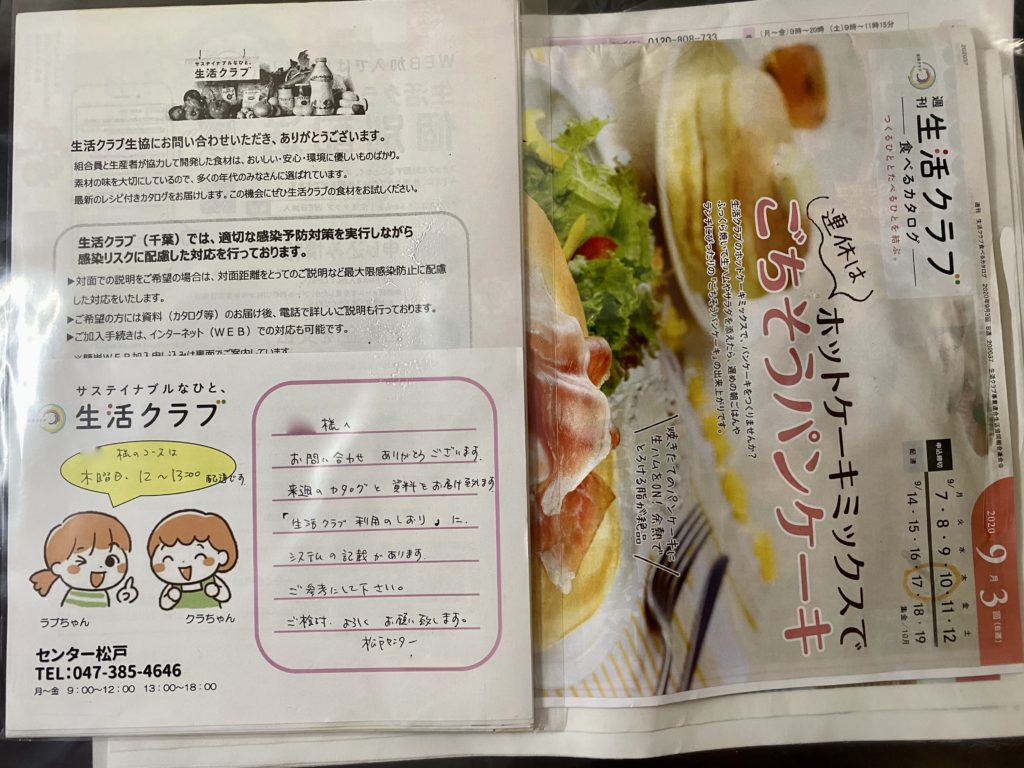 サステイナブルなひと、
生活クラブ
生活クラブ生協にお問い合わせいただき、ありがとうございます。
組合員と生産者が協力して開発した食材は、おいしい・安心・環境に優しいものばかり。
素材の味を大切にしているので、多くの年代のみなさんに選ばれています。
最新のレシピ付きカタログをお届けします。この機会にぜひ生活クラブの食材をお試しください。
生活クラブ（千葉）では、適切な感染予防対策を実行しながら
感染リスクに配慮した対応を行っております。
▶対面での説明をご希望の場合は、対面距離をとってのご説明など最大限感染防止に配慮
した対応をいたします。
▶ご希望の方には資料（カタログ等）のお届け後、電話で詳しいご説明も行っております。
▶ご加入手続きは、インターネット（WEB）での対応も可能です。
※簡単WEB加入申し込みは裏面でご案内しています
サステイナブルなひと、
生活クラブ
様のコースは
木曜日、12～13:00 配達です
ラブちゃん
クラちゃん
センター松戸
TEL：047-385-4646
月～金 9：00～12：00 13：00～18：00
様へ
お問い合わせ ありがとうございます。
来週のカタログと資料をお届け致します
「生活クラブ利用のしおり」に、
システムの記載があります。
ご参考にして下さい。
ご検討、よろしくお願い致します。
松戸センター
0120-808-733
（月～金）9時～20時（土）9時～11時15分
週刊
生活クラブ
食べるカタログ
つくるひととたべるひとを結ぶ。
連休は
ホットケーキミックスで
ごちそうパンケーキ
生活クラブのホットケーキミックスで、パンケーキをつくりませんか？
ふっくら焼いて生ハムやサラダを添えたら、遅めの朝ごはんや
ランチにぴったりの「ごちそうパンケーキ」の出来上がりです。
焼きたてのパンケーキに
生ハムをON！余熱で
とろける脂が絶品
2020
9月3回（B週）
月 火 水 木 金 土
申込締切 9/7・8・9・10・11・12
配達 9/14・15・16・17・18・19
集金/10月